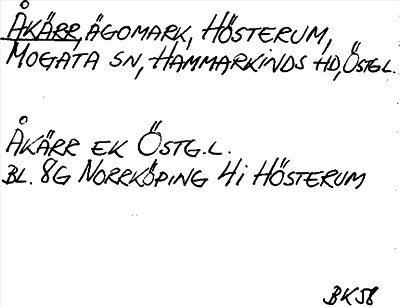 ÅKÄRR, ÄGOMARK, HÖSTERUM,
MOGATA SN, HAMMARKINDS HD, ÖSTGL.
ÅKÄRR EK ÖSTG.L.
BL. 8G NORRKÖPING 4i HÖSTERUM
BK58